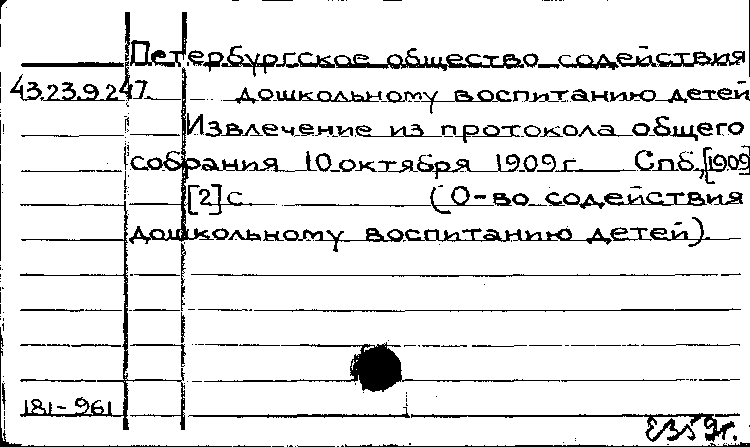 Петербургское общество содействия
43.23.9.247. дошкольному воспитанию детей
Извлечение из протокола общего
собрания 10 октября 1909 г. Спб., [1909]
[2] с. (О-во содействия
дошкольному воспитанию детей).
181-961